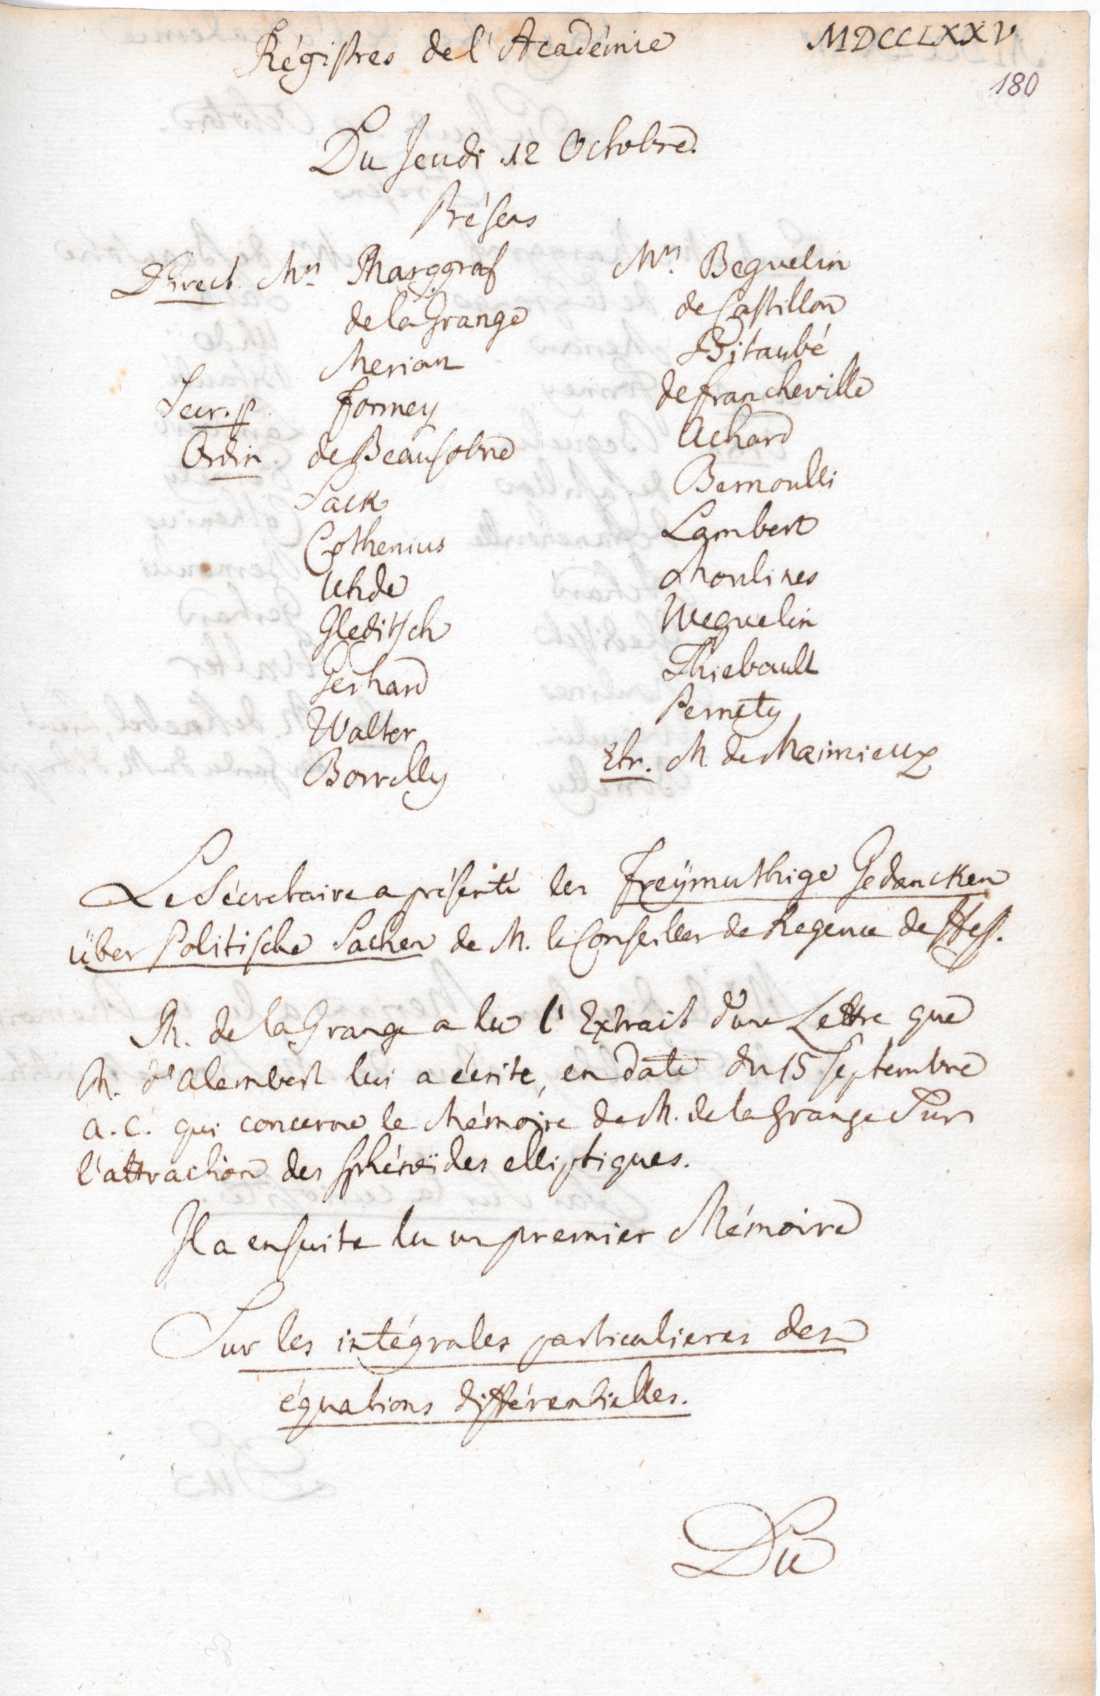 Régistres de l'Académie
MDCCLXXV
180
Du Jeudi 12 Octobre.
Présens
Direct. Mrs Marggraf
de la Grange
Merian
Secr. p. Formey
Ordin. de Beausobre
Sack
Cothenius
Uhde
Gleditsch
Gerhard
Walter
Borrelly
Mrs Beguelin
de Castillon
Bitaubé
de Francheville
Achard
Bernoulli
Lambert
Moulines
Weguelin
Thiebault
Pernety
Etr. M. de Maimieux
Le Sécretaire a présenté les Freÿmuthige Gedancken
über Politische Sachen de M. le Conseiller de Regence de Hess.
M. de la Grange a lu l'Extrait d'une Lettre que
M. d'Alembert lui a écrite, en date du 15 Septembre
a. c. qui concerne le Mémoire de M. de la Grange Sur
l'attraction des sphéroïdes elliptiques.
Il a ensuite lu un premier Mémoire
Sur les intégrales particulieres des
équations différentielles.
Du